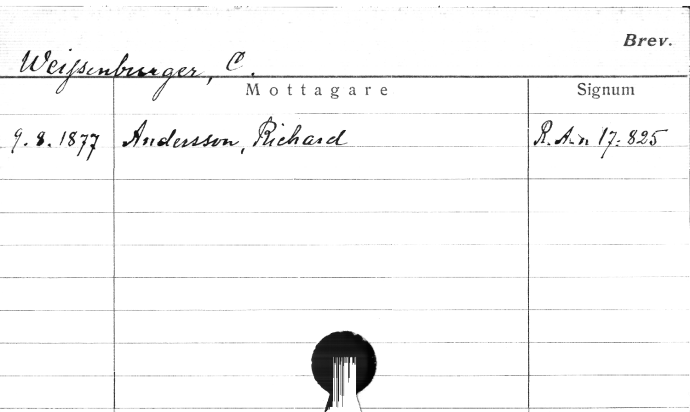 Brev.
Weissenburger, C.
Mottagare
Signum
9. 8. 1877 Andersson, Richard R.A:n 17: 825